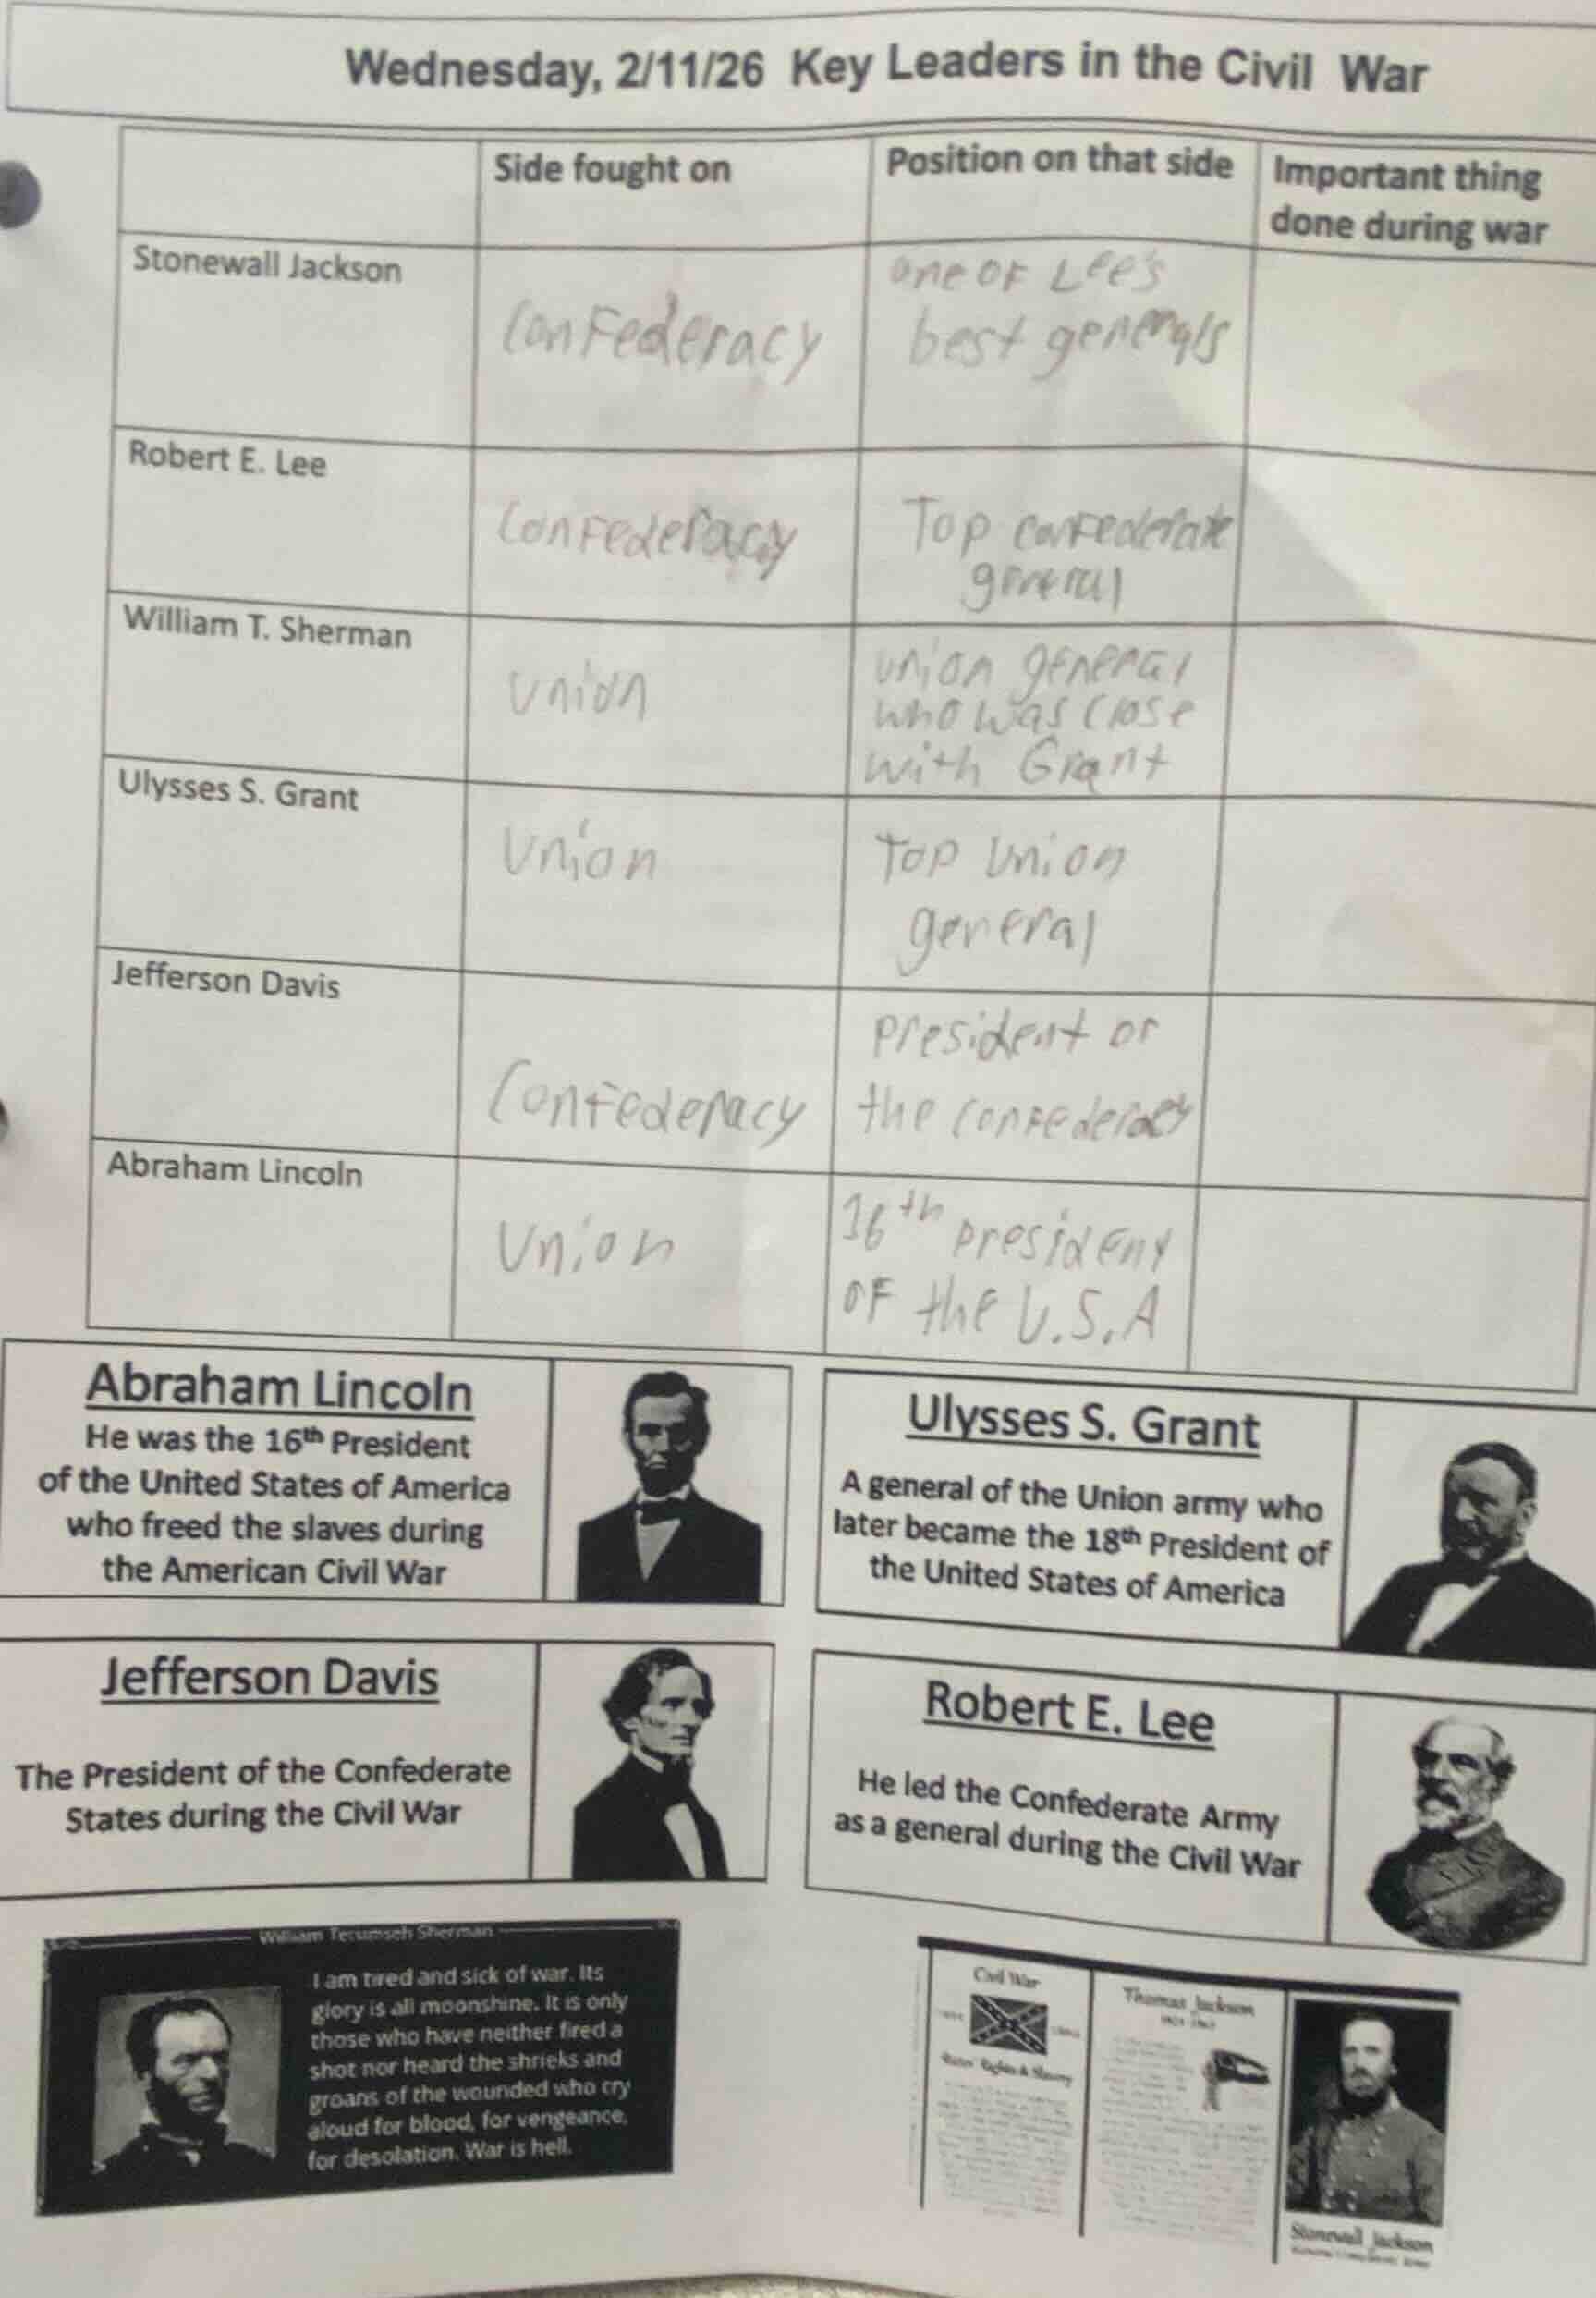 Wednesday, 2/11/26 Key Leaders in the Civil War
Side fought on
Position on that side
Important thing
done during war
Stonewall Jackson
Confederacy
one of Lee's
best generals
Robert E. Lee
Confederacy
Top confederate
general
William T. Sherman
Union
union general
who was close
with Grant
Ulysses S. Grant
Union
Top Union
general
Jefferson Davis
Confederacy
president of
the confederacy
Abraham Lincoln
Union
16th president
of the U.S.A
Abraham Lincoln
He was the 16th President
of the United States of America
who freed the slaves during
the American Civil War
Ulysses S. Grant
A general of the Union army who
later became the 18th President of
the United States of America
Jefferson Davis
The President of the Confederate
States during the Civil War
Robert E. Lee
He led the Confederate Army
as a general during the Civil War
William Tecumseh Sherman
I am tired and sick of war. Its
glory is all moonshine. It is only
those who have neither fired a
shot nor heard the shrieks and
groans of the wounded who cry
aloud for blood, for vengeance,
for desolation. War is hell.
Civil War
Rights & Slavery
Thomas Jackson
Stonewall Jackson